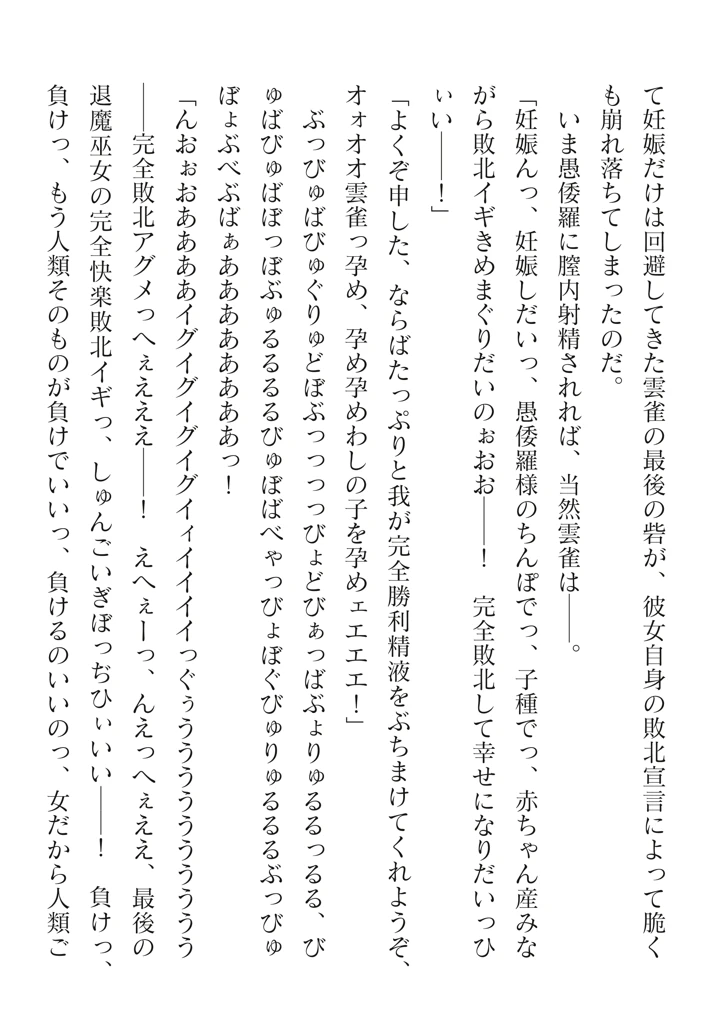 て妊娠だけは回避してきた雲雀の最後の砦が、彼女自身の敗北宣言によって脆く
も崩れ落ちてしまったのだ。
　いま愚倭羅に膣内射精されれば、当然雲雀は――。
「妊娠んっ、妊娠しだいっ、愚倭羅様のちんぽでっ、子種でっ、赤ちゃん産みな
がら敗北イギきめまぐりだいのぉおお――！　完全敗北して幸せになりだいっひ
ぃい――！」
「よくぞ申した、ならばたっぷりと我が完全勝利精液をぶちまけてくれようぞ、
オォオオ雲雀っ孕め、孕め孕めわしの子を孕めェエエエ！」
　ぶっびゅばびゅぐりゅどぼぶっっっっびょどびぁっばぶょりゅるるっるる、び
ゅばびゅばぼっぼぶゅるるるるびゅぼばべゃっびょぼぐびゅりゅるるるぶっびゅ
ぼょぶべぶばぁあああああああああっ！
「んおぉおああああイグイグイグイグイィイイイイっぐぅうううううううううう
――完全敗北アグメっへぇえええ――！　えへぇーっ、んえっへぇええ、最後の
退魔巫女の完全快楽敗北イギっ、しゅんごいぎぼっぢひぃいい――！　負けっ、
負けっ、もう人類そのものが負けでいいっ、負けるのいいのっ、女だから人類ご